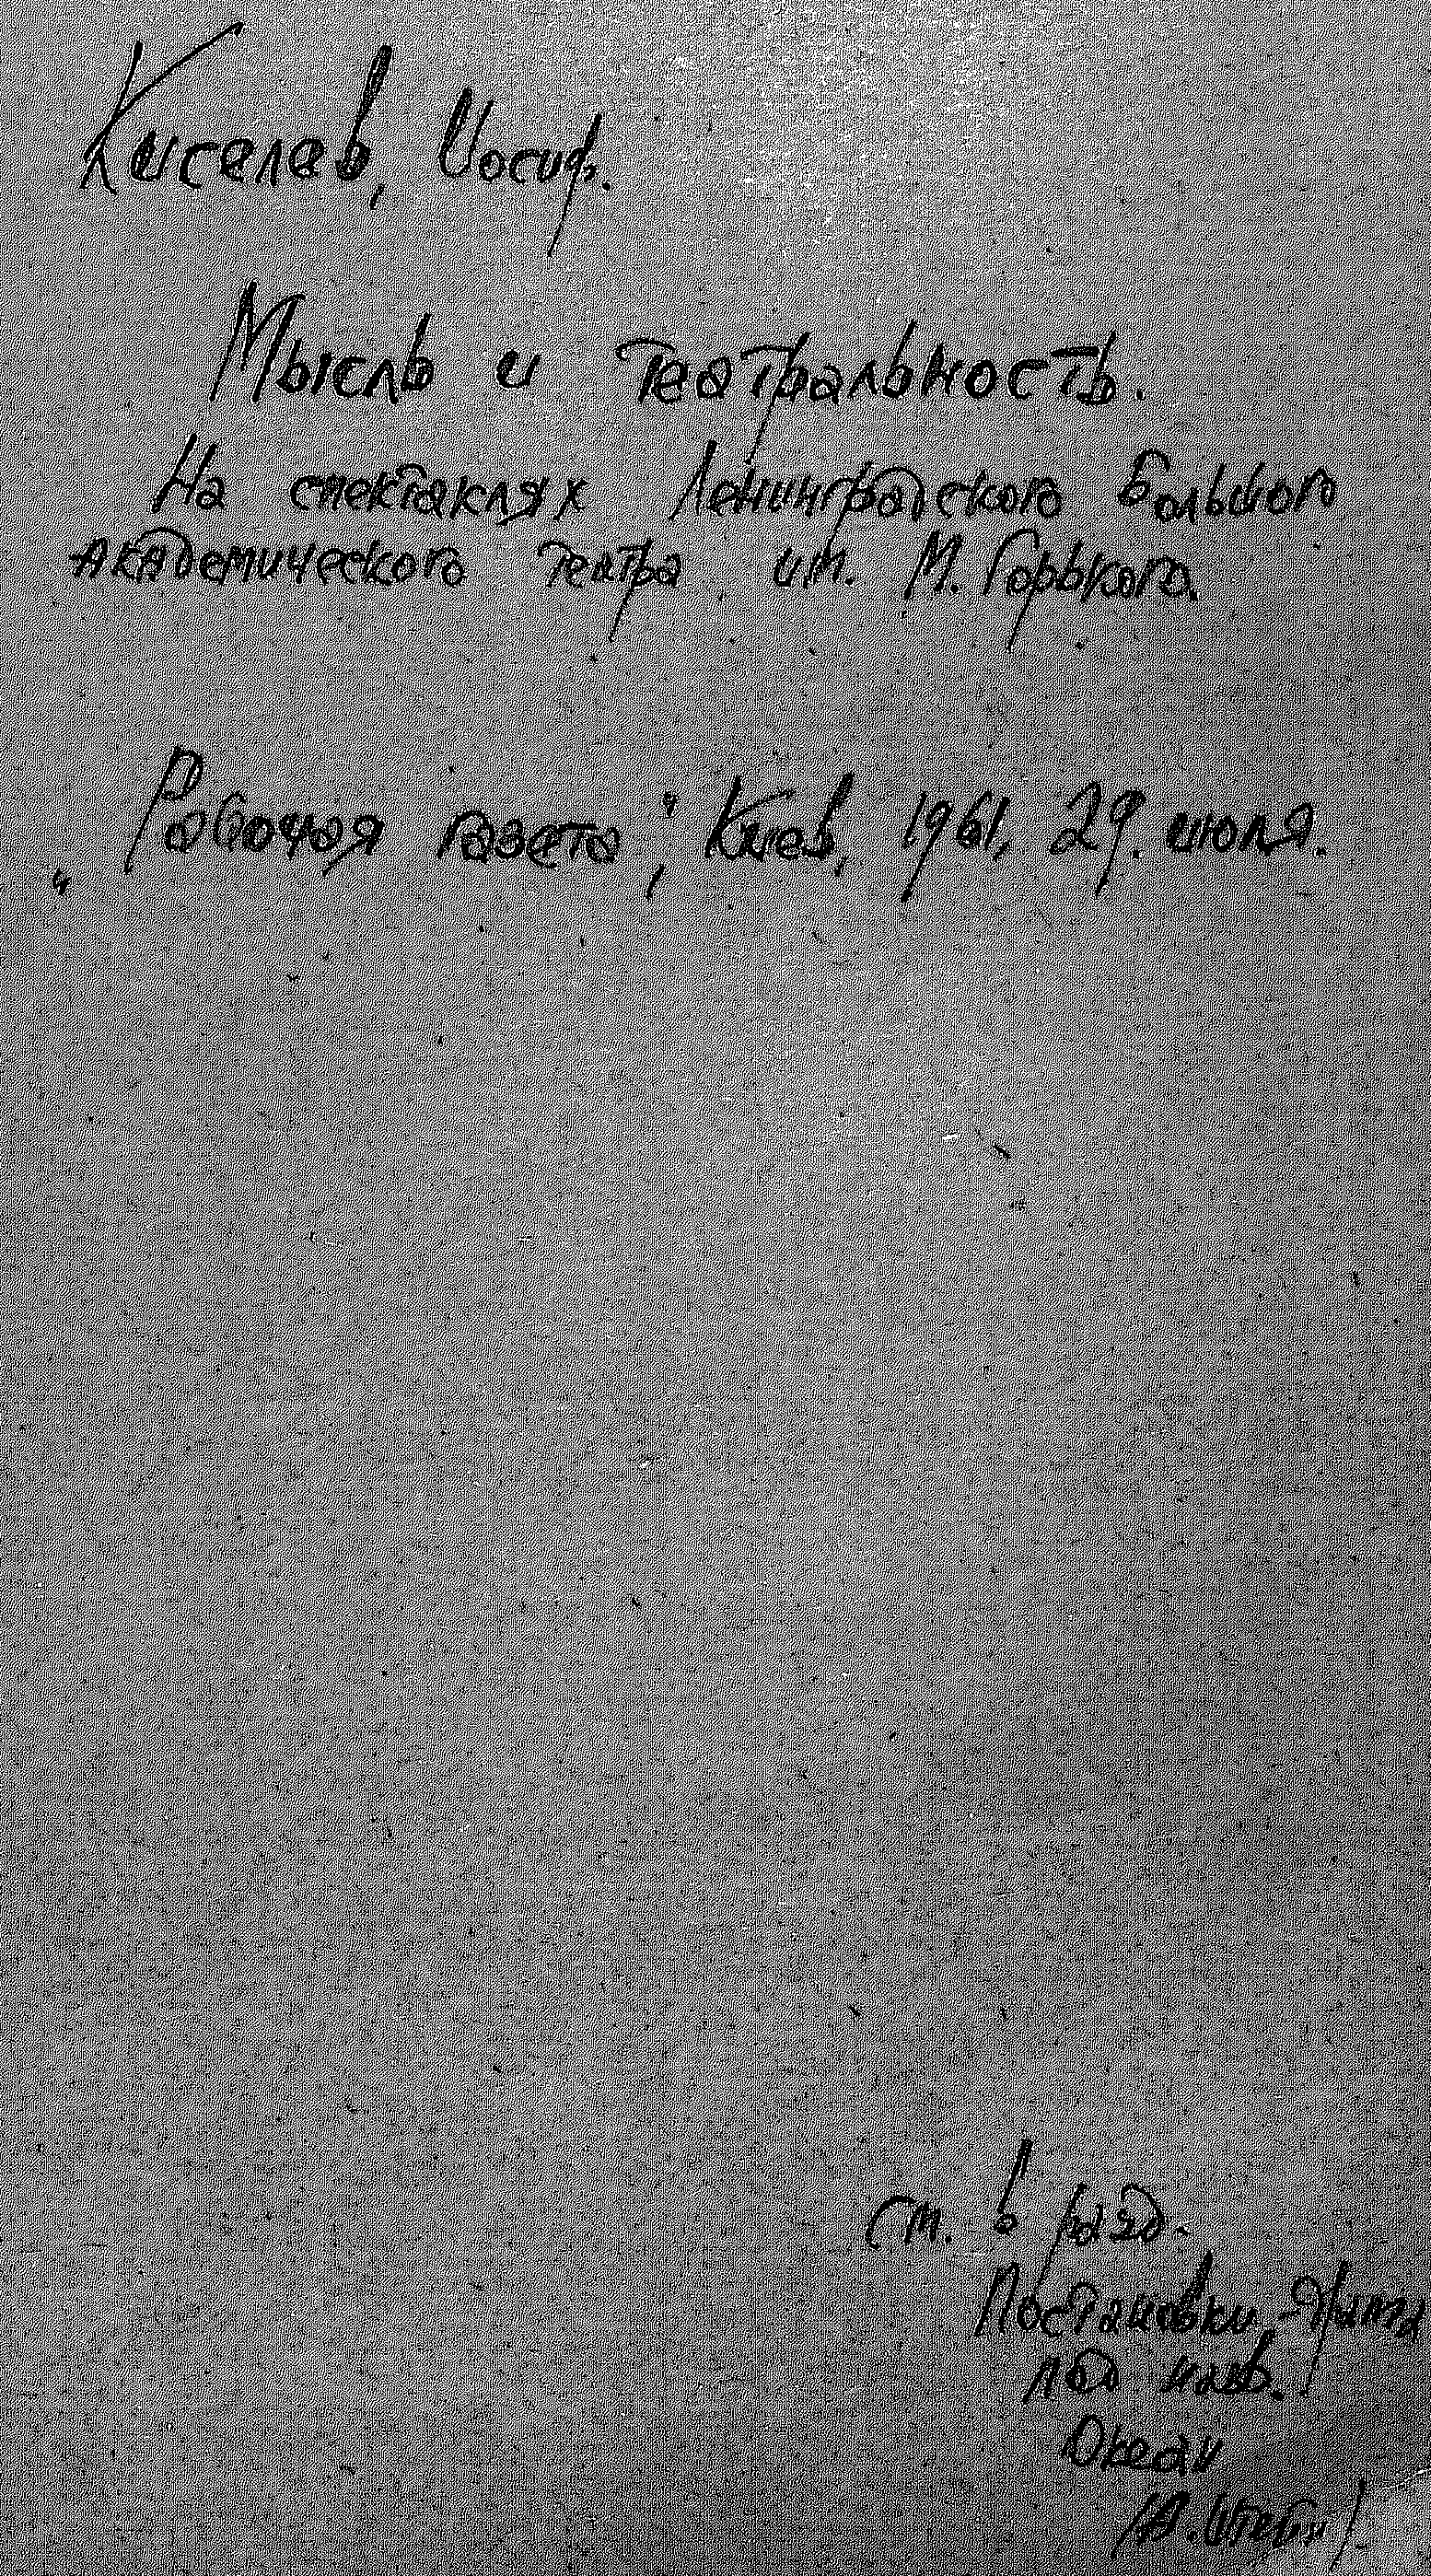 Киселев, Иосиф.
Мысль и театральность.
На спектаклях Ленинградского Большого
Академического театра им. М. Горького.
„Рабочая газета", Киев, 1961, 29. июля.
См. в разд.
Постановки
под назв.
Океан
/А. Штейн/